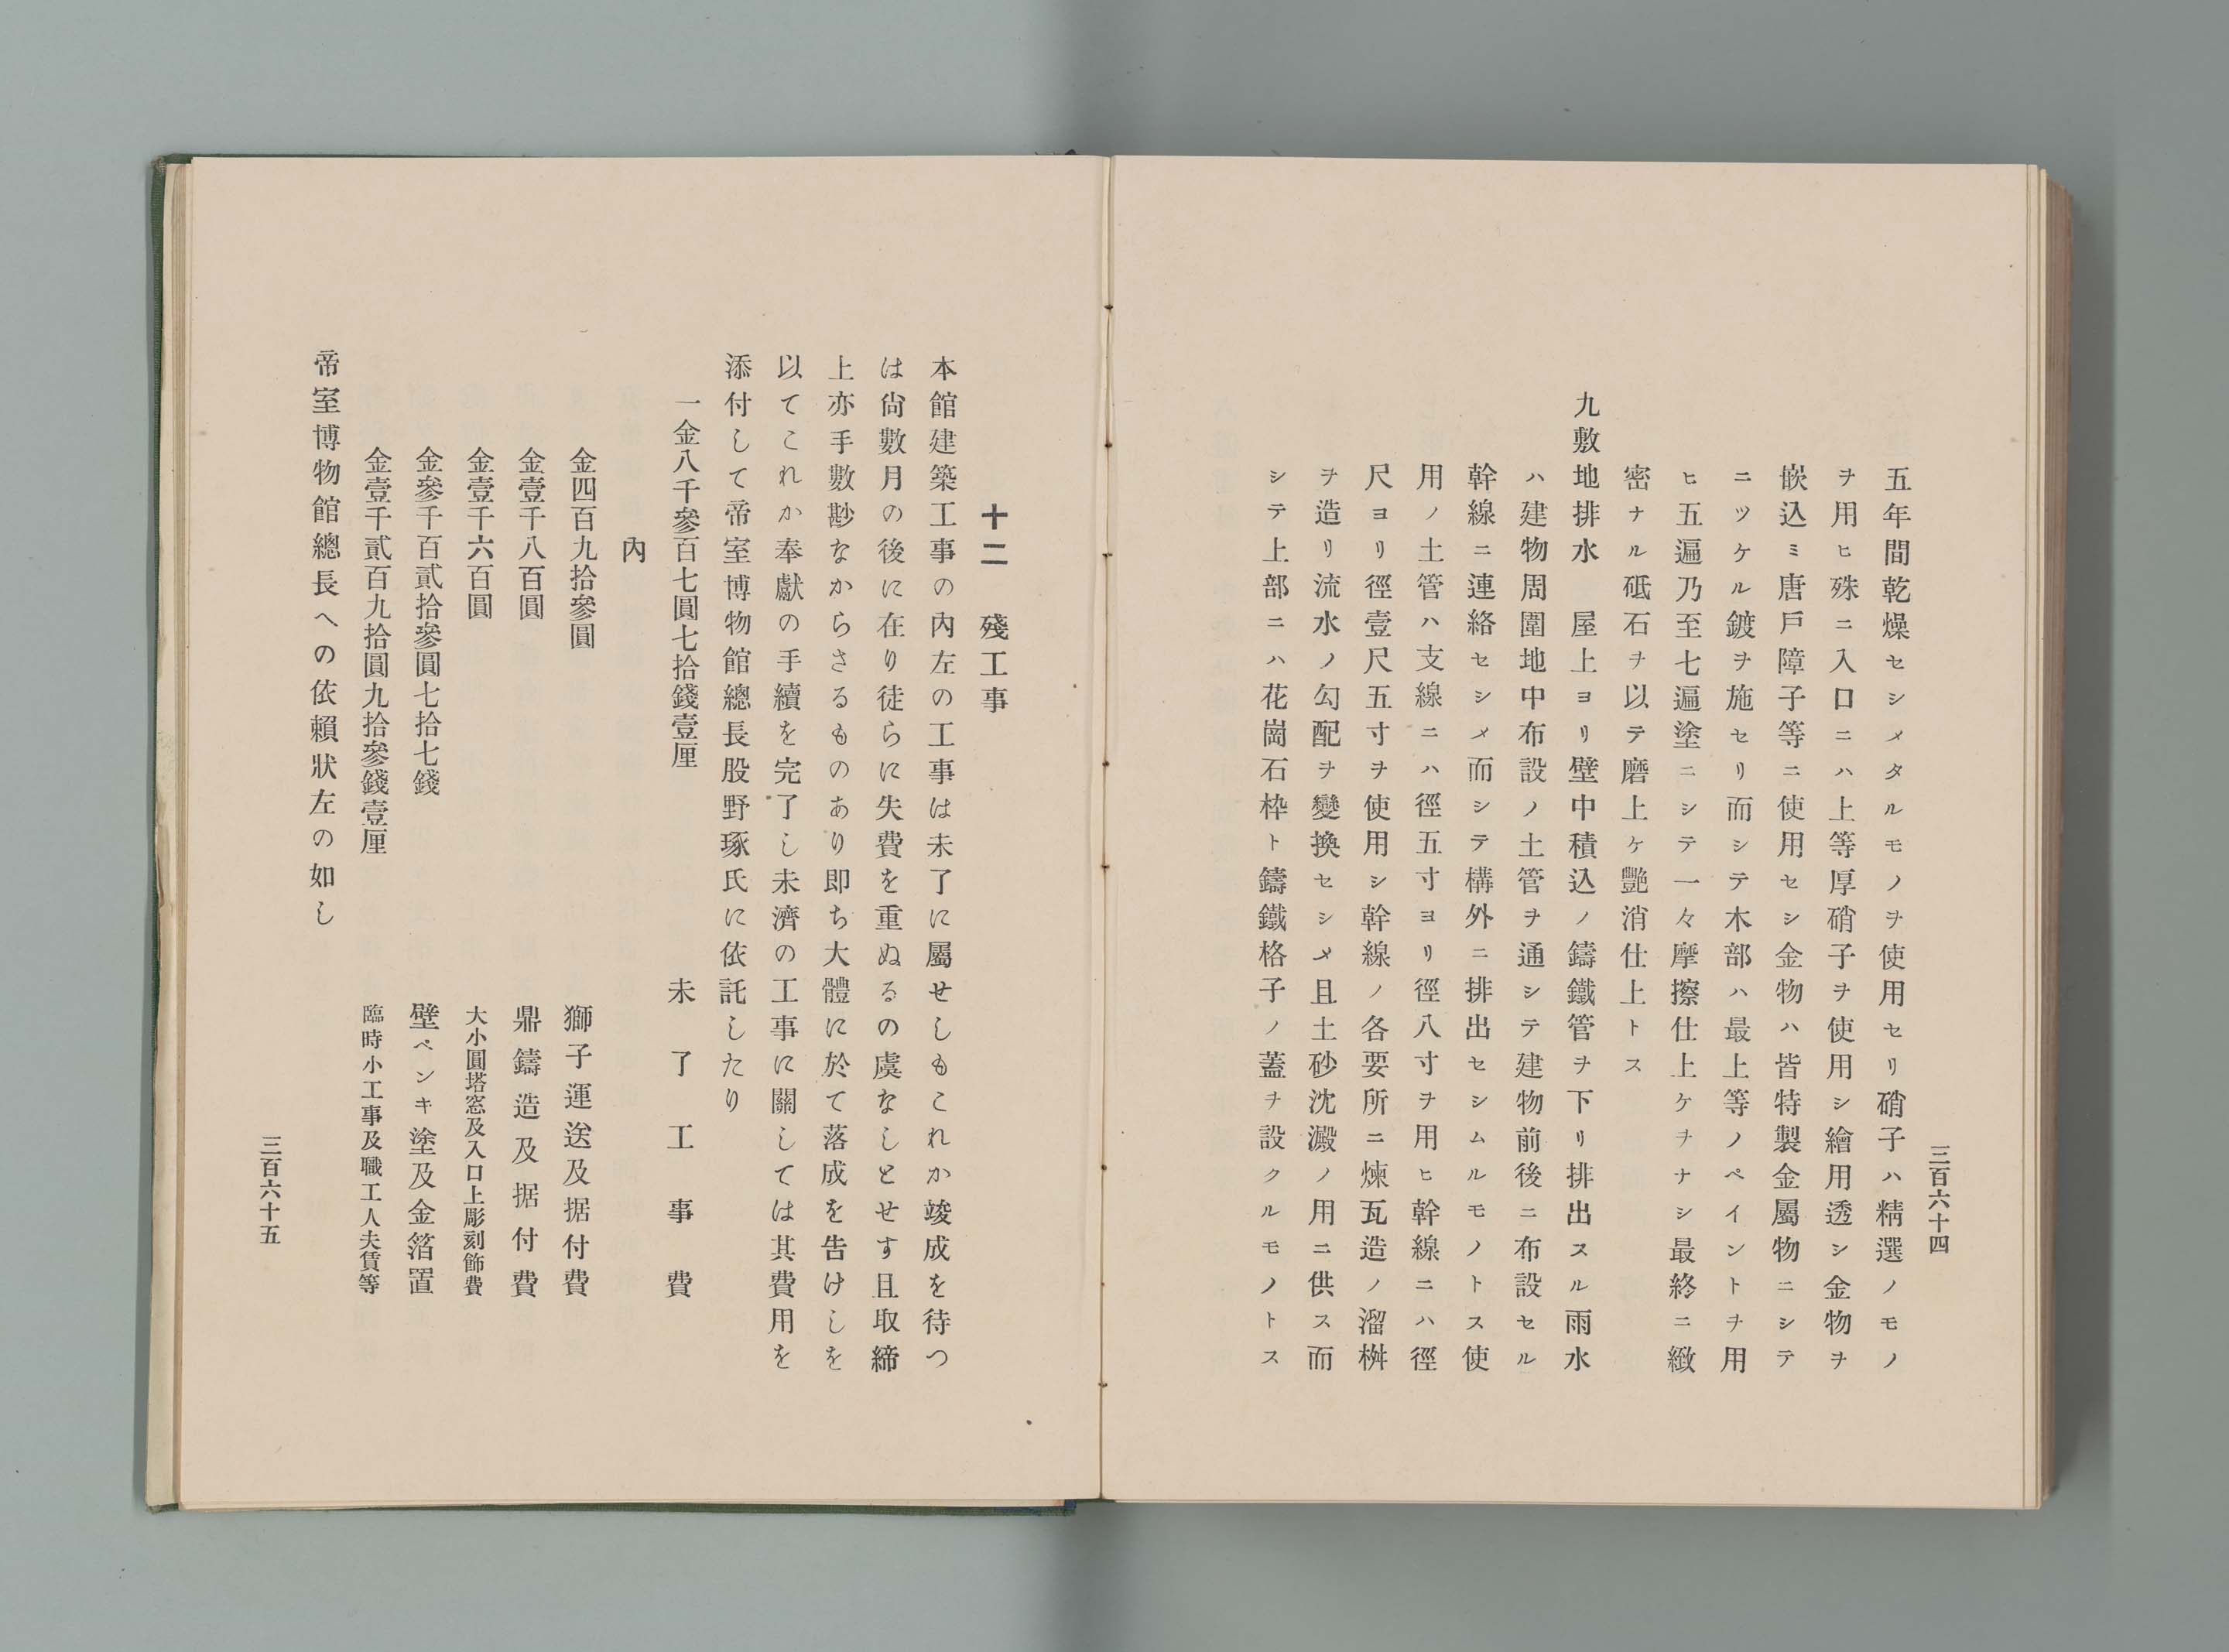 三百六十四
五年間乾燥セシメタルモノヲ使用セリ硝子ハ精選ノモノ
ヲ用ヒ殊ニ入口ニハ上等厚硝子ヲ使用シ繪用透シ金物ヲ
嵌込ミ唐戸障子等ニ使用セシ金物ハ皆特製金屬物ニシテ
ニツケル鍍ヲ施セリ而シテ木部ハ最上等ノペイントヲ用
ヒ五遍乃至七遍塗ニシテ一々摩擦仕上ケヲナシ最終ニ緻
密ナル砥石ヲ以テ磨上ケ艷消仕上トス
九敷地排水 屋上ヨリ壁中積込ノ鑄鐵管ヲ下リ排出スル雨水
ハ建物周圍地中布設ノ土管ヲ通シテ建物前後ニ布設セル
幹線ニ連絡セシメ而シテ構外ニ排出セシムルモノトス使
用ノ土管ハ支線ニハ徑五寸ヨリ徑八寸ヲ用ヒ幹線ニハ徑
尺ヨリ徑壹尺五寸ヲ使用シ幹線ノ各要所ニ煉瓦造ノ溜桝
ヲ造リ流水ノ勾配ヲ變換セシメ且土砂沈澱ノ用ニ供ス而
シテ上部ニハ花崗石枠ト鑄鐵格子ノ蓋ヲ設クルモノトス
十二 殘工事
本館建築工事の內左の工事は未了に屬せしもこれか竣成を待つ
は尙數月の後に在り徒らに失費を重ぬるの虞なしとせす且取締
上亦手數尠なからさるものあり卽ち大體に於て落成を告けしを
以てこれか奉獻の手續を完了し未濟の工事に關しては其費用を
添付して帝室博物館總長股野琢氏に依託したり
一金八千參百七圓七拾錢壹厘 未了工事費
內
金四百九拾參圓 獅子運送及据付費
金壹千八百圓 鼎鑄造及据付費
金壹千六百圓 大小圓塔窓及入口上彫刻飾費
金參千百貳拾參圓七拾七錢 壁ペンキ塗及金箔置
金壹千貳百九拾圓九拾參錢壹厘 臨時小工事及職工人夫賃等
帝室博物館總長への依賴狀左の如し
三百六十五